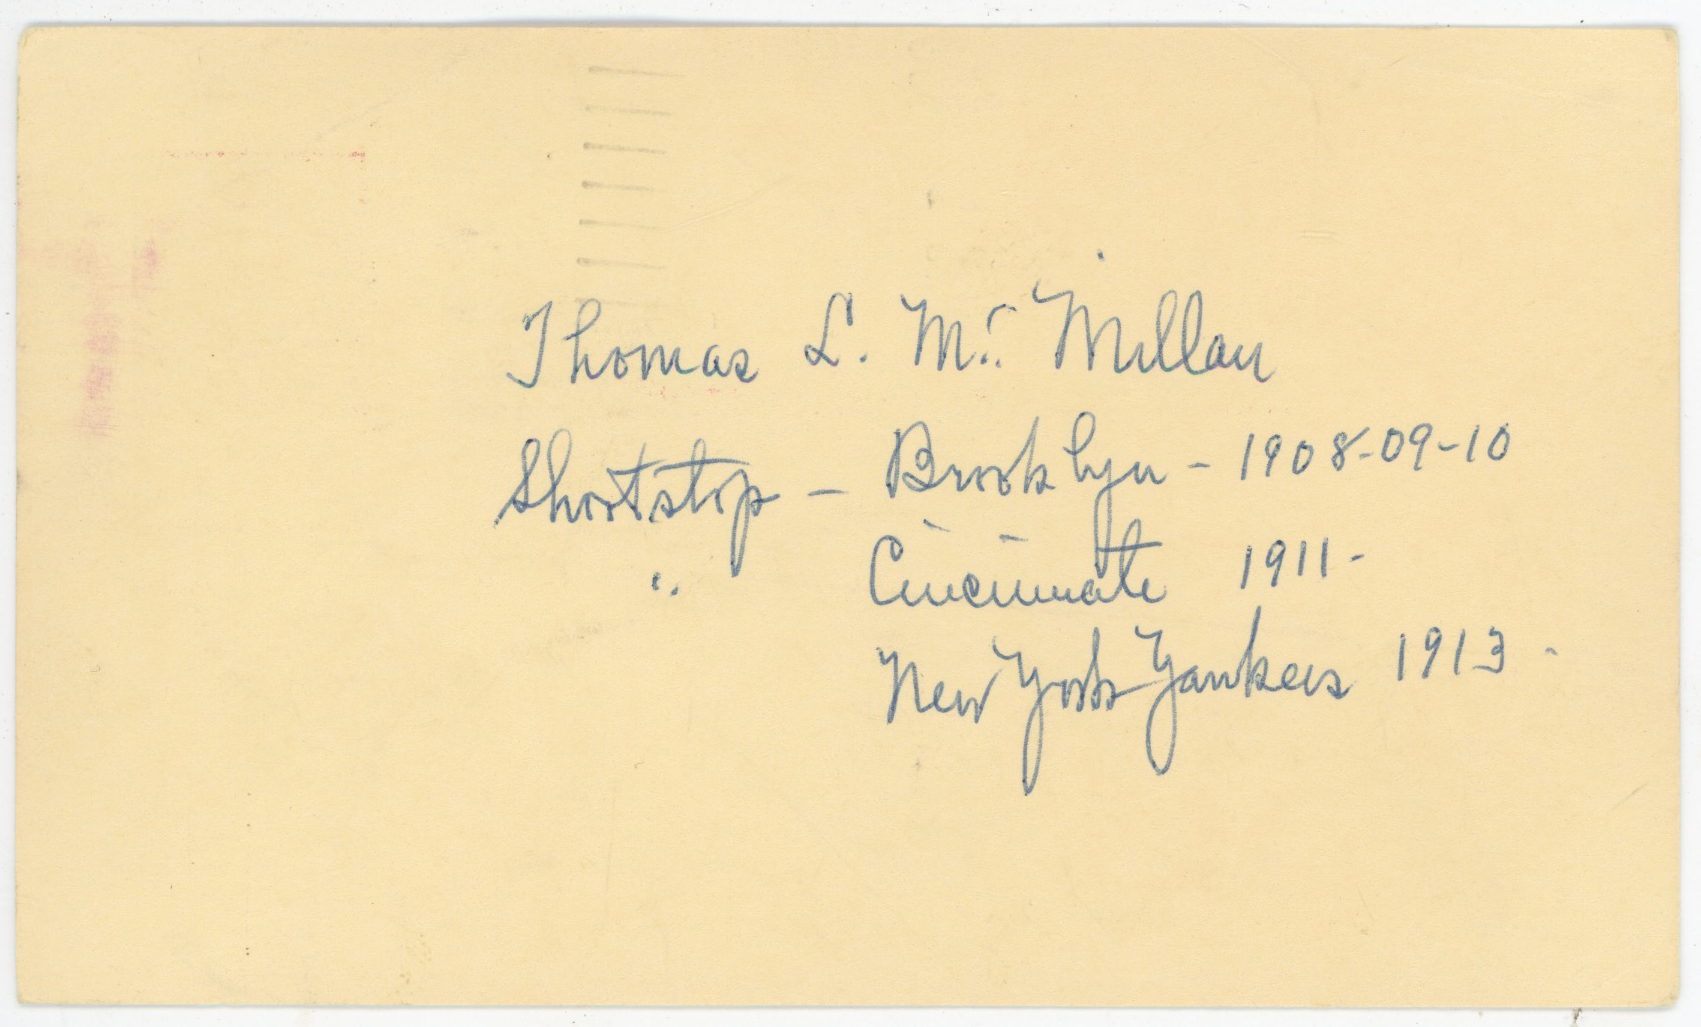 Thomas L. Mc Millan
Shortstop - Brooklyn - 1908-09-10
" Cincinnati 1911-
New York Yankees 1913-